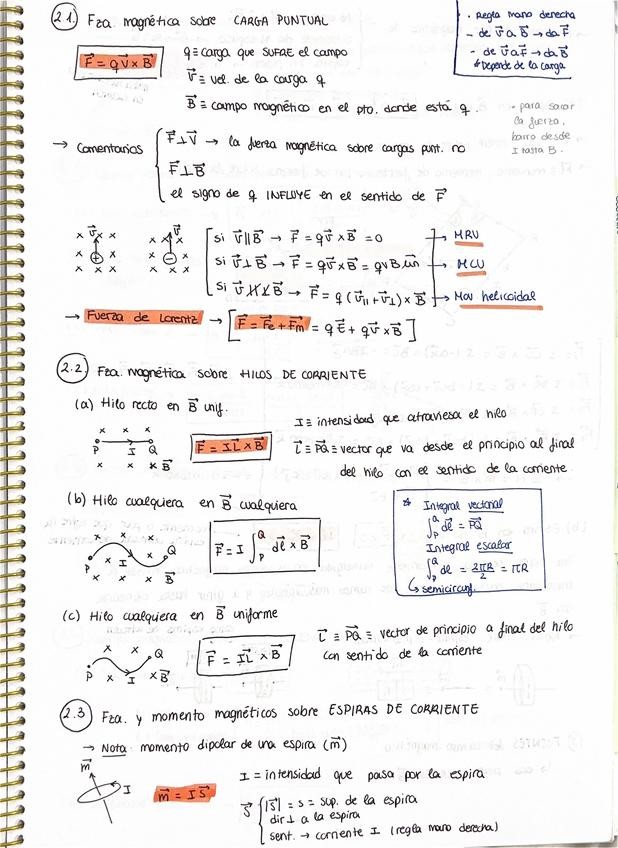 2.1. Fza. magnética sobre CARGA PUNTUAL
· Regla mano derecha
- de v⃗ a B⃗ → da F⃗
- de v⃗ a F⃗ → da B⃗
* Depende de la carga
F⃗ = q v⃗ x B⃗
q ≡ carga que SUFRE el campo
v⃗ ≡ vel. de la carga q
B⃗ ≡ campo magnético en el pto. donde está q.
· para sacar
la fuerza,
barro desde
I hasta B.
→ Comentarios
F⃗ ⊥ v⃗ → la fuerza magnética sobre cargas punt. no
F⃗ ⊥ B⃗
el signo de q INFLUYE en el sentido de F⃗
x v⃗ x x
x + x
x x x
x x v⃗ x
x - x
x x x
si v⃗ ∥ B⃗ → F⃗ = q v⃗ x B⃗ = 0 → MRU
si v⃗ ⊥ B⃗ → F⃗ = q v⃗ x B⃗ = q v B → MCU
si v⃗ ∦ ⊥̸ B⃗ → F⃗ = q (v⃗∥ + v⃗⊥) x B⃗ → Mov helicoidal
→ Fuerza de Lorentz → [F⃗ = F⃗e + F⃗m = q E⃗ + q v⃗ x B⃗]
2.2. Fza. magnética sobre HILOS DE CORRIENTE
(a) Hilo recto en B⃗ unif.
x x x
P I Q
x x x B⃗
F⃗ = I L⃗ x B⃗
I ≡ intensidad que atraviesa el hilo
L⃗ ≡ PQ⃗ ≡ vector que va desde el principio al final
del hilo con el sentido de la corriente.
(b) Hilo cualquiera en B⃗ cualquiera
x x x
P x I x Q
x x x B⃗
F⃗ = I ∫_P^Q dl⃗ x B⃗
* Integral vectorial
∫_P^Q dl⃗ = PQ⃗
Integral escalar
∫_P^Q dl = 2πR/2 = πR
↳ semicircunf.
(c) Hilo cualquiera en B⃗ uniforme
x x Q
P x I x B⃗
F⃗ = I L⃗ x B⃗
L⃗ ≡ PQ⃗ ≡ vector de principio a final del hilo
con sentido de la corriente
2.3 Fza. y momento magnéticos sobre ESPIRAS DE CORRIENTE
→ Nota: momento dipolar de una espira (m⃗)
m⃗
I
m⃗ = I S⃗
I = intensidad que pasa por la espira
S⃗
|S⃗| = s = sup. de la espira
dir ⊥ a la espira
sent. → corriente I (regla mano derecha)